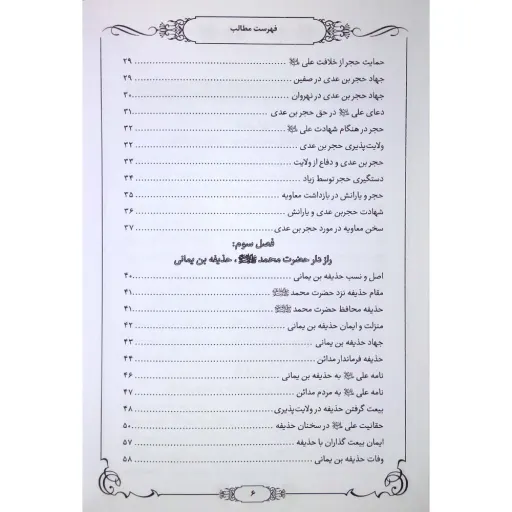 فهرست مطالب
حمایت حجر از خلافت علی ﷷ ........ ۲۹
جهاد حجر بن عدی در صفین ........ ۲۹
جهاد حجر بن عدی در نهروان ........ ۳۰
دعای علی ﷷ در حق حجر بن عدی ........ ۳۱
حجر در هنگام شهادت علی ﷷ ........ ۳۲
ولایت‌پذیری حجر بن عدی ........ ۳۲
حجر بن عدی و دفاع از ولایت ........ ۳۳
دستگیری حجر توسط زیاد ........ ۳۴
حجر و یارانش در بازداشت معاویه ........ ۳۵
شهادت حجربن عدی و یارانش ........ ۳۶
سخن معاویه در مورد حجر بن عدی ........ ۳۷
فصل سوم:
راز دار حضرت محمد ﷺ، حذیفه بن یمانی
اصل و نسب حذیفه بن یمانی ........ ۴۰
مقام حذیفه نزد حضرت محمد ﷺ ........ ۴۱
حذیفه محافظ حضرت محمد ﷺ ........ ۴۱
منزلت و ایمان حذیفه بن یمانی ........ ۴۲
جهاد حذیفه بن یمانی ........ ۴۳
حذیفه فرماندار مدائن ........ ۴۴
نامه علی ﷷ به حذیفه بن یمانی ........ ۴۶
نامه علی ﷷ به مردم مدائن ........ ۴۷
بیعت گرفتن حذیفه در ولایت‌پذیری ........ ۴۸
حقانیت علی ﷷ در سخنان حذیفه ........ ۵۰
ایمان بیعت گذاران با حذیفه ........ ۵۷
وفات حذیفه بن یمانی ........ ۵۸
۶